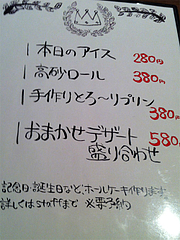 本日のアイス 280円
高砂ロール 380円
手作りとろ〜りプリン
380円
おまかせデザート 580円
盛り合わせ
記念日・誕生日など、ホールケーキ作ります
詳しくはstaffまで ※要予約